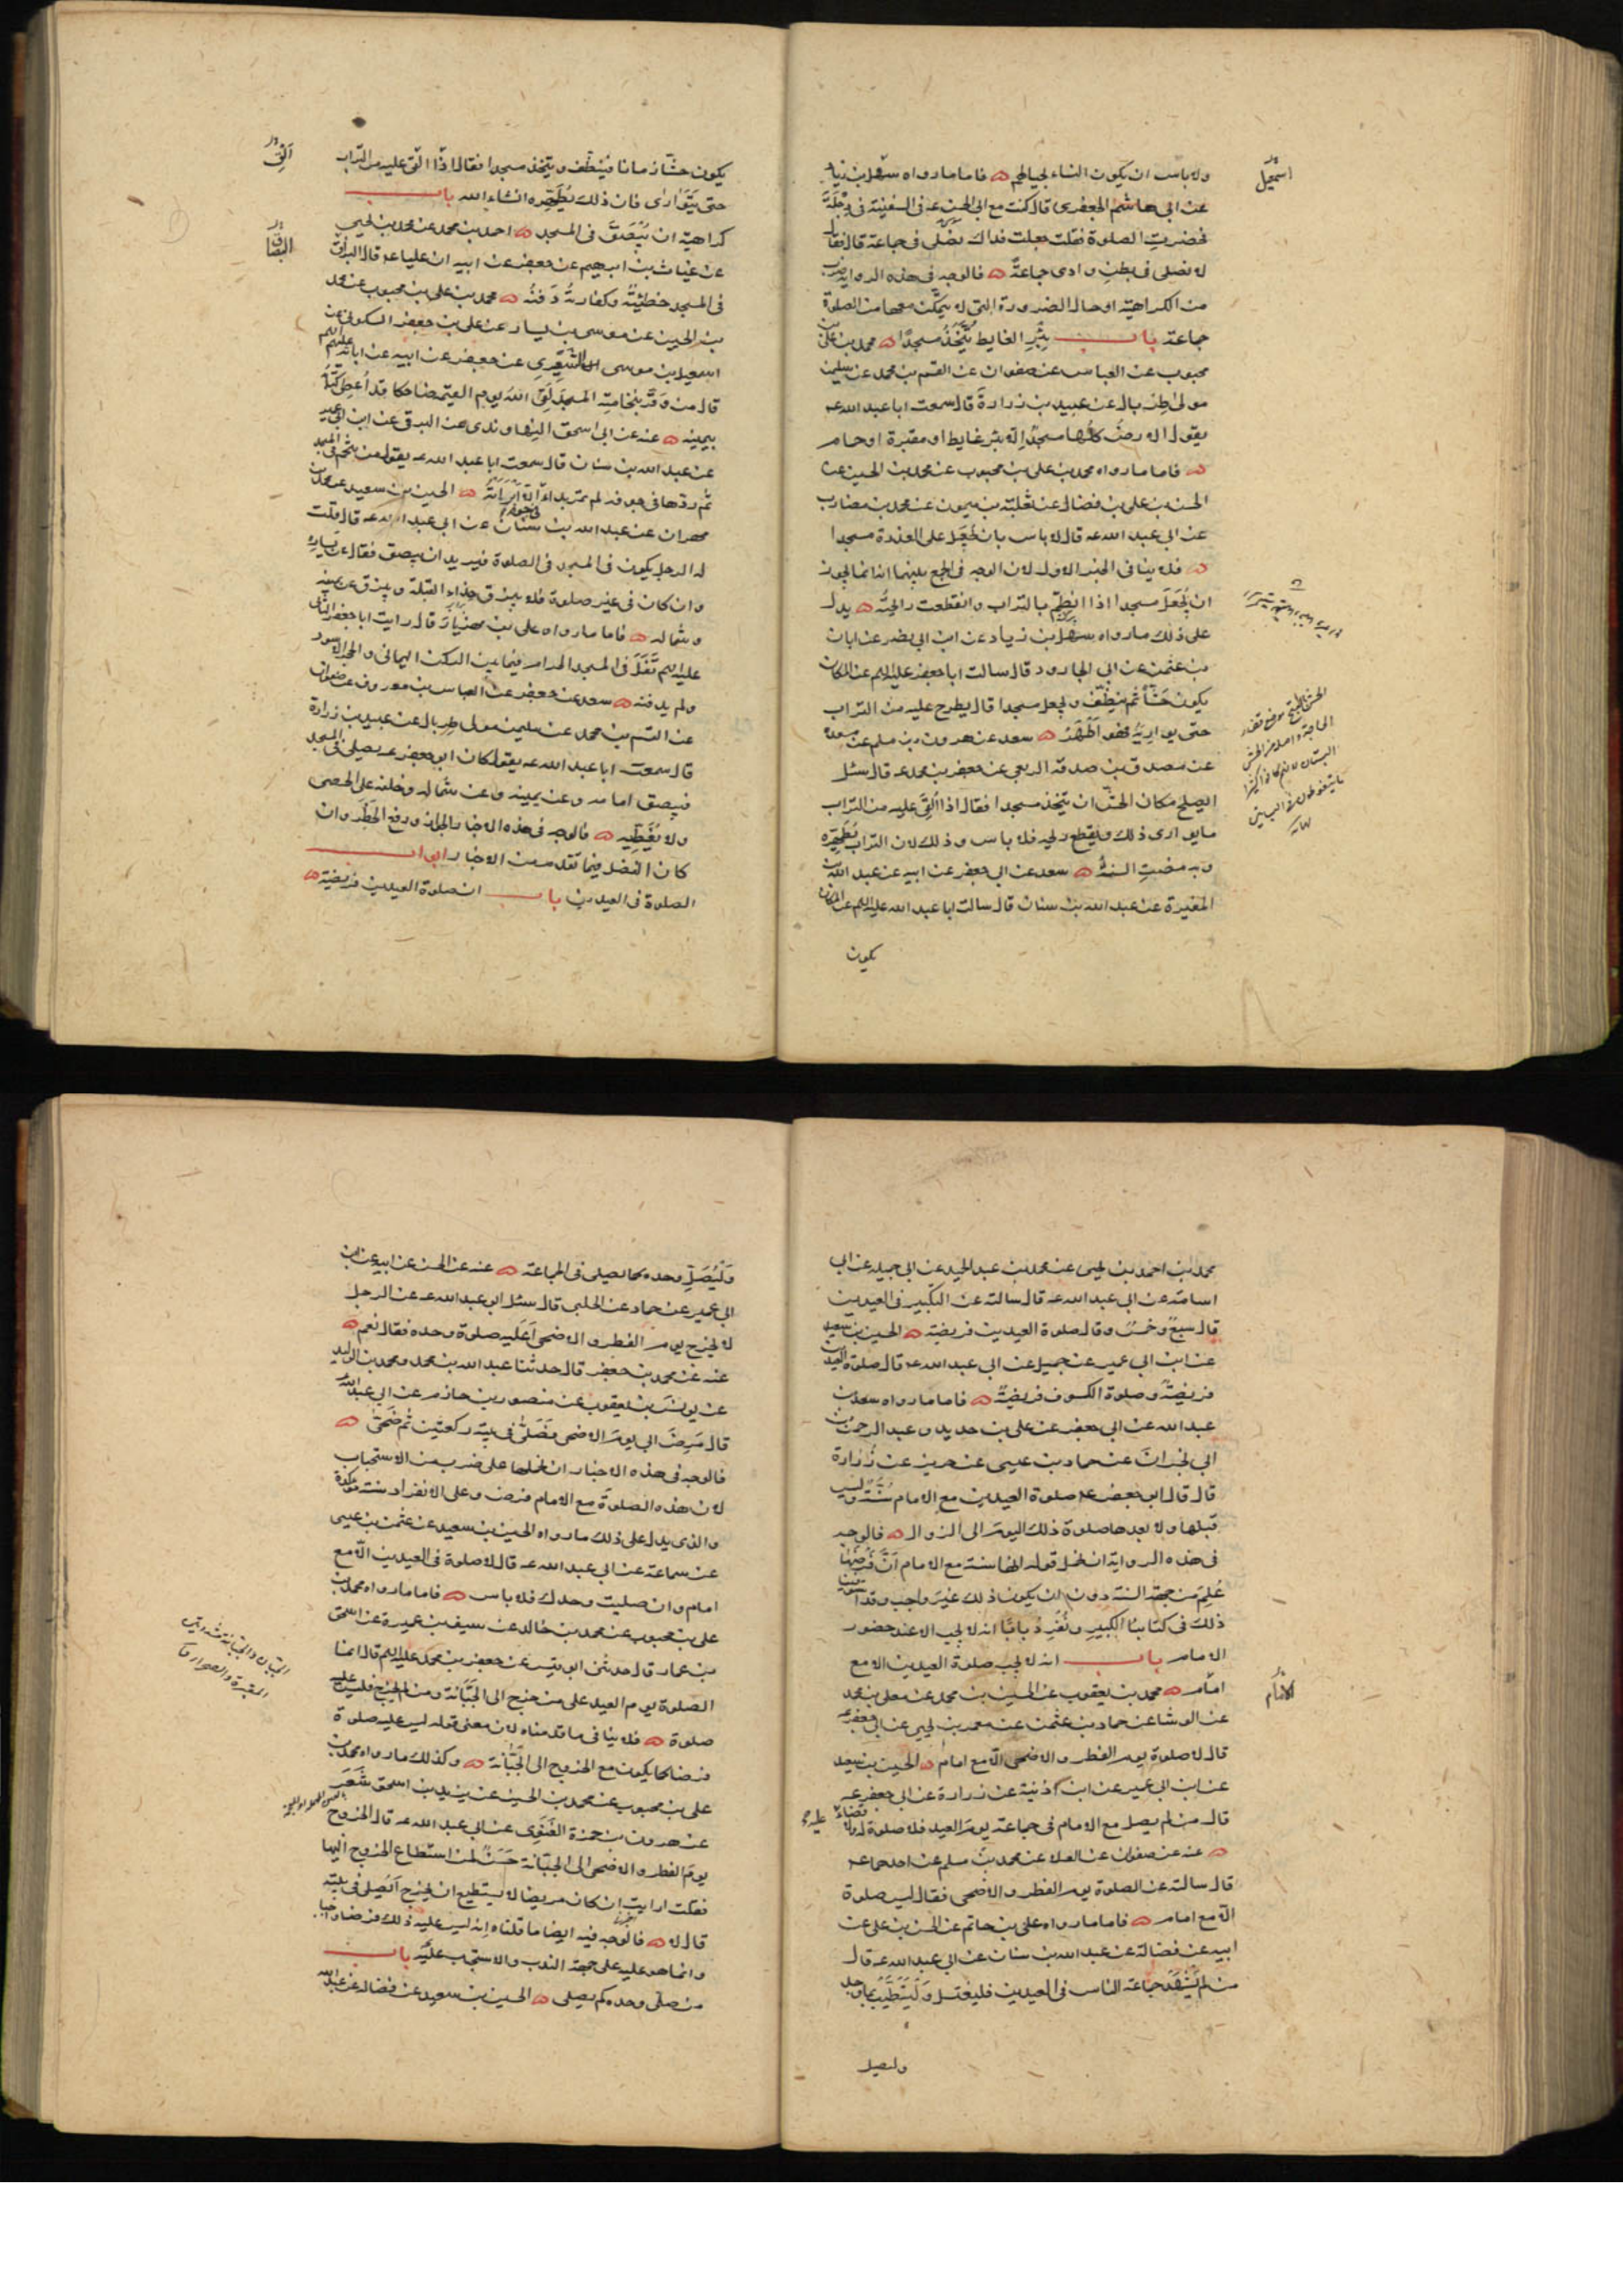 ولا باس ان يكون النساء بحيالهم فاما ما رواه سهل بن زياد
عن ابى هاشم الجعفرى قال كنت مع ابى الحسن ع فى السفينة فى دجلة
فحضرت الصلوة فقلت جعلت فداك نصلى فى جماعة قال فقال
لا نصلى فى بطن وادى جماعة فالوجه فى هذه الرواية ضرب
من الكراهية او حال الضرورة التى لا يتمكن معها من الصلوة
جماعة باب بئر الغايط يتخذ مسجدا محمد بن على بن
محبوب عن العباس عن صفوان عن القسم بن محمد عن سليمن
مولى طربال عن عبيد بن زرارة قال سمعت ابا عبد الله ع
يقول الارض كلها مسجد الا بئر غايط او مقبرة او حمام
فاما ما رواه محمد بن على بن محبوب عن محمد بن الحسين عن
الحسن بن على بن فضال عن ثعلبة بن ميمون عن محمد بن مضارب
عن ابى عبد الله ع قال لا باس بان يجعل على العذرة مسجدا
فلا ينافى الخبر الاول لان الوجه فى الجمع بينهما انه انما يجوز
ان يجعل مسجدا اذا انطم بالتراب وانقطعت رايحته يدل
على ذلك ما رواه سهل بن زياد عن ابن ابى نصر عن ابان
بن عثمن عن ابى الجارود قال سالت ابا جعفر عليه السلم عن المكان
يكون حشا ثم ينظف ويجعل مسجدا قال يطرح عليه من التراب
حتى يواريه فهو اطهر سعد عن هرون بن مسلم عن مسعدة
عن مصدق بن صدقة الربعى عن جعفر بن محمد ع قال سئل
ايصلح مكان الحش ان يتخذ مسجدا فقال اذا القى عليه من التراب
ما يوارى ذلك ويقطع ريحه فلا باس وذلك لان التراب يطهره
وبه مضت السنة سعد عن ابى جعفر عن ابيه عن عبد الله بن
المغيرة عن عبد الله بن سنان قال سالت ابا عبد الله عليه السلم عن المكان
يكون
اسمعيل
يكون حشا زمانا فينظف ويتخذ مسجدا فقال اذا القى عليه من التراب
حتى يتوارى فان ذلك يطهره انشاء الله باب
كراهية ان يبصق فى المسجد احمد بن محمد عن محمد بن يحيى
عن غياث بن ابرهيم عن جعفر عن ابيه ان عليا ع قال البزاق
فى المسجد خطيئة وكفارته دفنه محمد بن على بن محبوب عن محمد
بن الحسين عن موسى بن يسار عن على بن جعفر السكونى عن
اسمعيل بن موسى الشعيرى عن جعفر عن ابيه عن ابائه عليهم السلم
قال من وقر بنخامته المسجد لقى الله يوم القيمة ضاحكا قد اعطى كتابه
بيمينه عنه عن ابى اسحق النهاوندى عن البرقى عن ابن ابى عمير
عن عبد الله بن سنان قال سمعت ابا عبد الله ع يقول من تنخم فى المسجد
ثم ردها فى جوفه لم تمر بداء الا ابرأته الحسين بن سعيد عن محمد بن
مهران عن عبد الله بن سنان عن ابى عبد الله ع قال قلت
له الرجل يكون فى المسجد فى الصلوة فيريد ان يبصق فقال عن يساره
وان كان فى غير صلوة فلا يبزق حذاء القبلة ويبزق عن يمينه
وشماله فاما ما رواه على بن مهزيار قال رايت ابا جعفر الثانى
عليه السلم تفل فى المسجد الحرام فيما بين الركن اليمانى والحجر الاسود
ولم يدفنه سعد عن جعفر عن العباس بن معروف عن صفوان
عن القسم بن محمد عن سليمن مولى طربال عن عبيد بن زرارة
قال سمعت ابا عبد الله ع يقول كان ابو جعفر ع يصلى فى المسجد
فيبصق امامه وعن يمينه وعن شماله وخلفه على الحصى
ولا يغطيه فالوجه فى هذه الاخبار الجواز ورفع الحظر وان
كان الفضل فيما تقدم من الاخبار ابواب
الصلوة فى العيدين باب ان صلوة العيدين فريضة
القى
البصاق
محمد بن احمد بن يحيى عن محمد بن عبد الحميد عن ابى جميلة عن ابى
اسامة عن ابى عبد الله ع قال سالته عن التكبير فى العيدين
قال سبع وخمس وقال صلوة العيدين فريضة الحسين بن سعيد
عن ابن ابى عمير عن جميل عن ابى عبد الله ع قال صلوة العيدين
فريضة وصلوة الكسوف فريضة فاما ما رواه سعد بن
عبد الله عن ابى جعفر عن على بن حديد وعبد الرحمن بن
ابى نجران عن حماد بن عيسى عن حريز عن زرارة
قال قال ابو جعفر ع صلوة العيدين مع الامام سنة وليس
قبلها ولا بعدها صلوة ذلك اليوم الى الزوال فالوجه
فى هذه الرواية ان نحمل قوله انها سنة مع الامام ان فرضها
علم من جهة السنة دون ان يكون ذلك غير واجب وقد استوفينا
ذلك فى كتابنا الكبير ونفرد بابا انه لا يجب الا عند حضور
الامام باب انه لا تجب صلوة العيدين الا مع
امام محمد بن يعقوب عن الحسين بن محمد عن معلى بن محمد
عن الوشا عن حماد بن عثمن عن معمر بن يحيى عن ابى جعفر ع
قال لا صلوة يوم الفطر والاضحى الا مع امام الحسين بن سعيد
عن ابن ابى عمير عن ابن اذنية عن زرارة عن ابى جعفر ع
قال من لم يصل مع الامام فى جماعة يوم العيد فلا صلوة له ولا قضاء عليه
عنه عن صفوان عن العلا عن محمد بن مسلم عن احدهما ع
قال سالته عن الصلوة يوم الفطر والاضحى فقال ليس صلوة
الا مع امام فاما ما رواه على بن حاتم عن الحسن بن على عن
ابيه عن فضالة عن عبد الله بن سنان عن ابى عبد الله ع قال
من لم يشهد جماعة الناس فى العيدين فليغتسل وليتطيب بما وجد
وليصل
وليصل وحده كما يصلى فى الجماعة عنه عن الحسن عن ابيه عن ابن
ابى عمير عن حماد عن الحلبى قال سئل ابو عبد الله ع عن الرجل
لا يخرج يوم الفطر والاضحى اعليه صلوة وحده فقال نعم
عنه عن محمد بن جعفر قال حدثنا عبد الله بن محمد ومحمد بن الوليد
عن يونس بن يعقوب عن منصور بن حازم عن ابى عبد الله ع
قال مرض ابى يوم الاضحى فصلى فى بيته ركعتين ثم ضحى
فالوجه فى هذه الاخبار ان نحملها على ضرب من الاستحباب
لان هذه الصلوة مع الامام فرض وعلى الانفراد سنة مؤكدة
والذى يدل على ذلك ما رواه الحسين بن سعيد عن عثمن بن عيسى
عن سماعة عن ابى عبد الله ع قال لا صلوة فى العيدين الا مع
امام وان صليت وحدك فلا باس فاما ما رواه محمد بن
على بن محبوب عن محمد بن خالد عن سيف بن عميرة عن اسحق
بن عمار قال حدثنى ابو قيس عن جعفر بن محمد عليه السلم قال انما
الصلوة يوم العيد على من خرج الى الجبانة ومن لم يخرج فليس عليه
صلوة فلا ينافى ما قدمناه لان معنى قوله ليس عليه صلوة
فرضا كما يكون مع الخروج الى الجبانة وكذلك ما رواه محمد بن
على بن محبوب عن محمد بن الحسين عن يزيد بن اسحق شعر
عن هرون بن حمزة الغنوى عن ابى عبد الله ع قال الخروج
يوم الفطر والاضحى الى الجبانة حسن لمن استطاع الخروج اليها
فقلت ارايت ان كان مريضا لا يستطيع ان يخرج ايصلى فى بيته
قال لا فالوجه فيه ايضا ما قلناه انه ليس عليه ذلك فرضا واجبا
وانما هو عليه على جهة الندب والاستحباب باب
من صلى وحده كم يصلى الحسين بن سعيد عن فضالة عن عبد الله